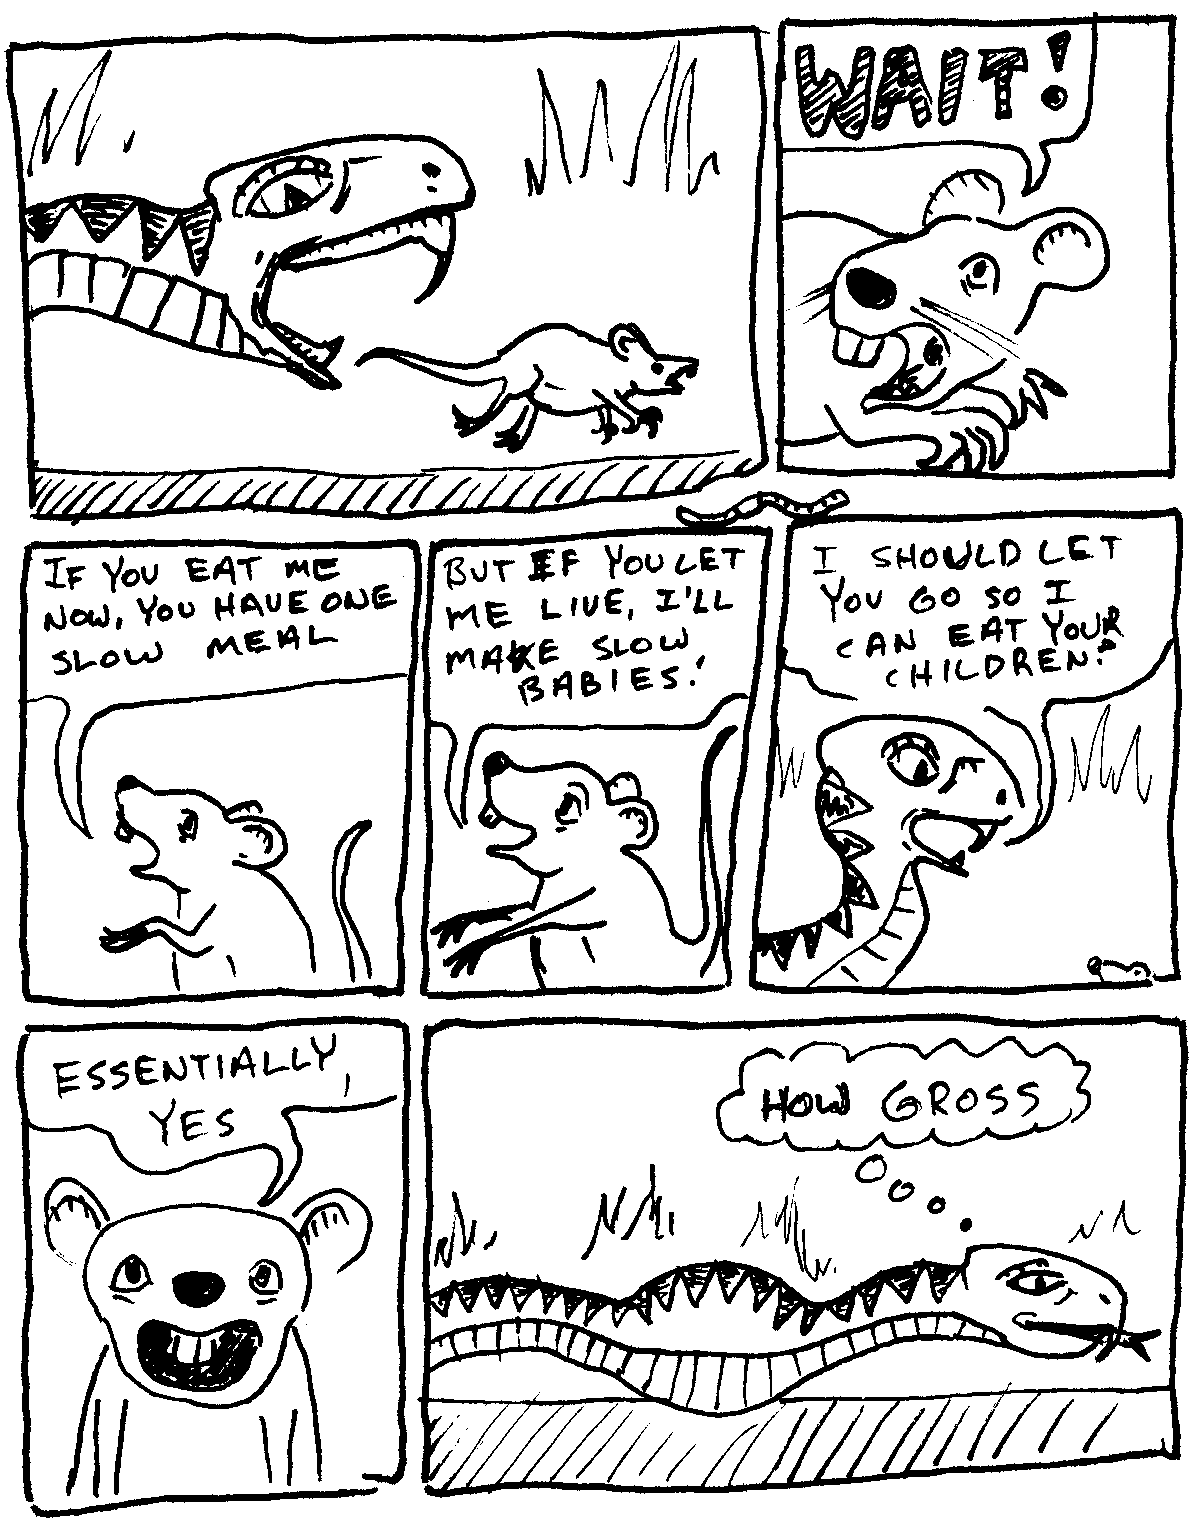 WAIT!
IF YOU EAT ME
NOW, YOU HAVE ONE
SLOW MEAL
BUT IF YOU LET
ME LIVE, I'LL
MAKE SLOW
BABIES!
I SHOULD LET
YOU GO SO I
CAN EAT YOUR
CHILDREN?
ESSENTIALLY,
YES
HOW GROSS